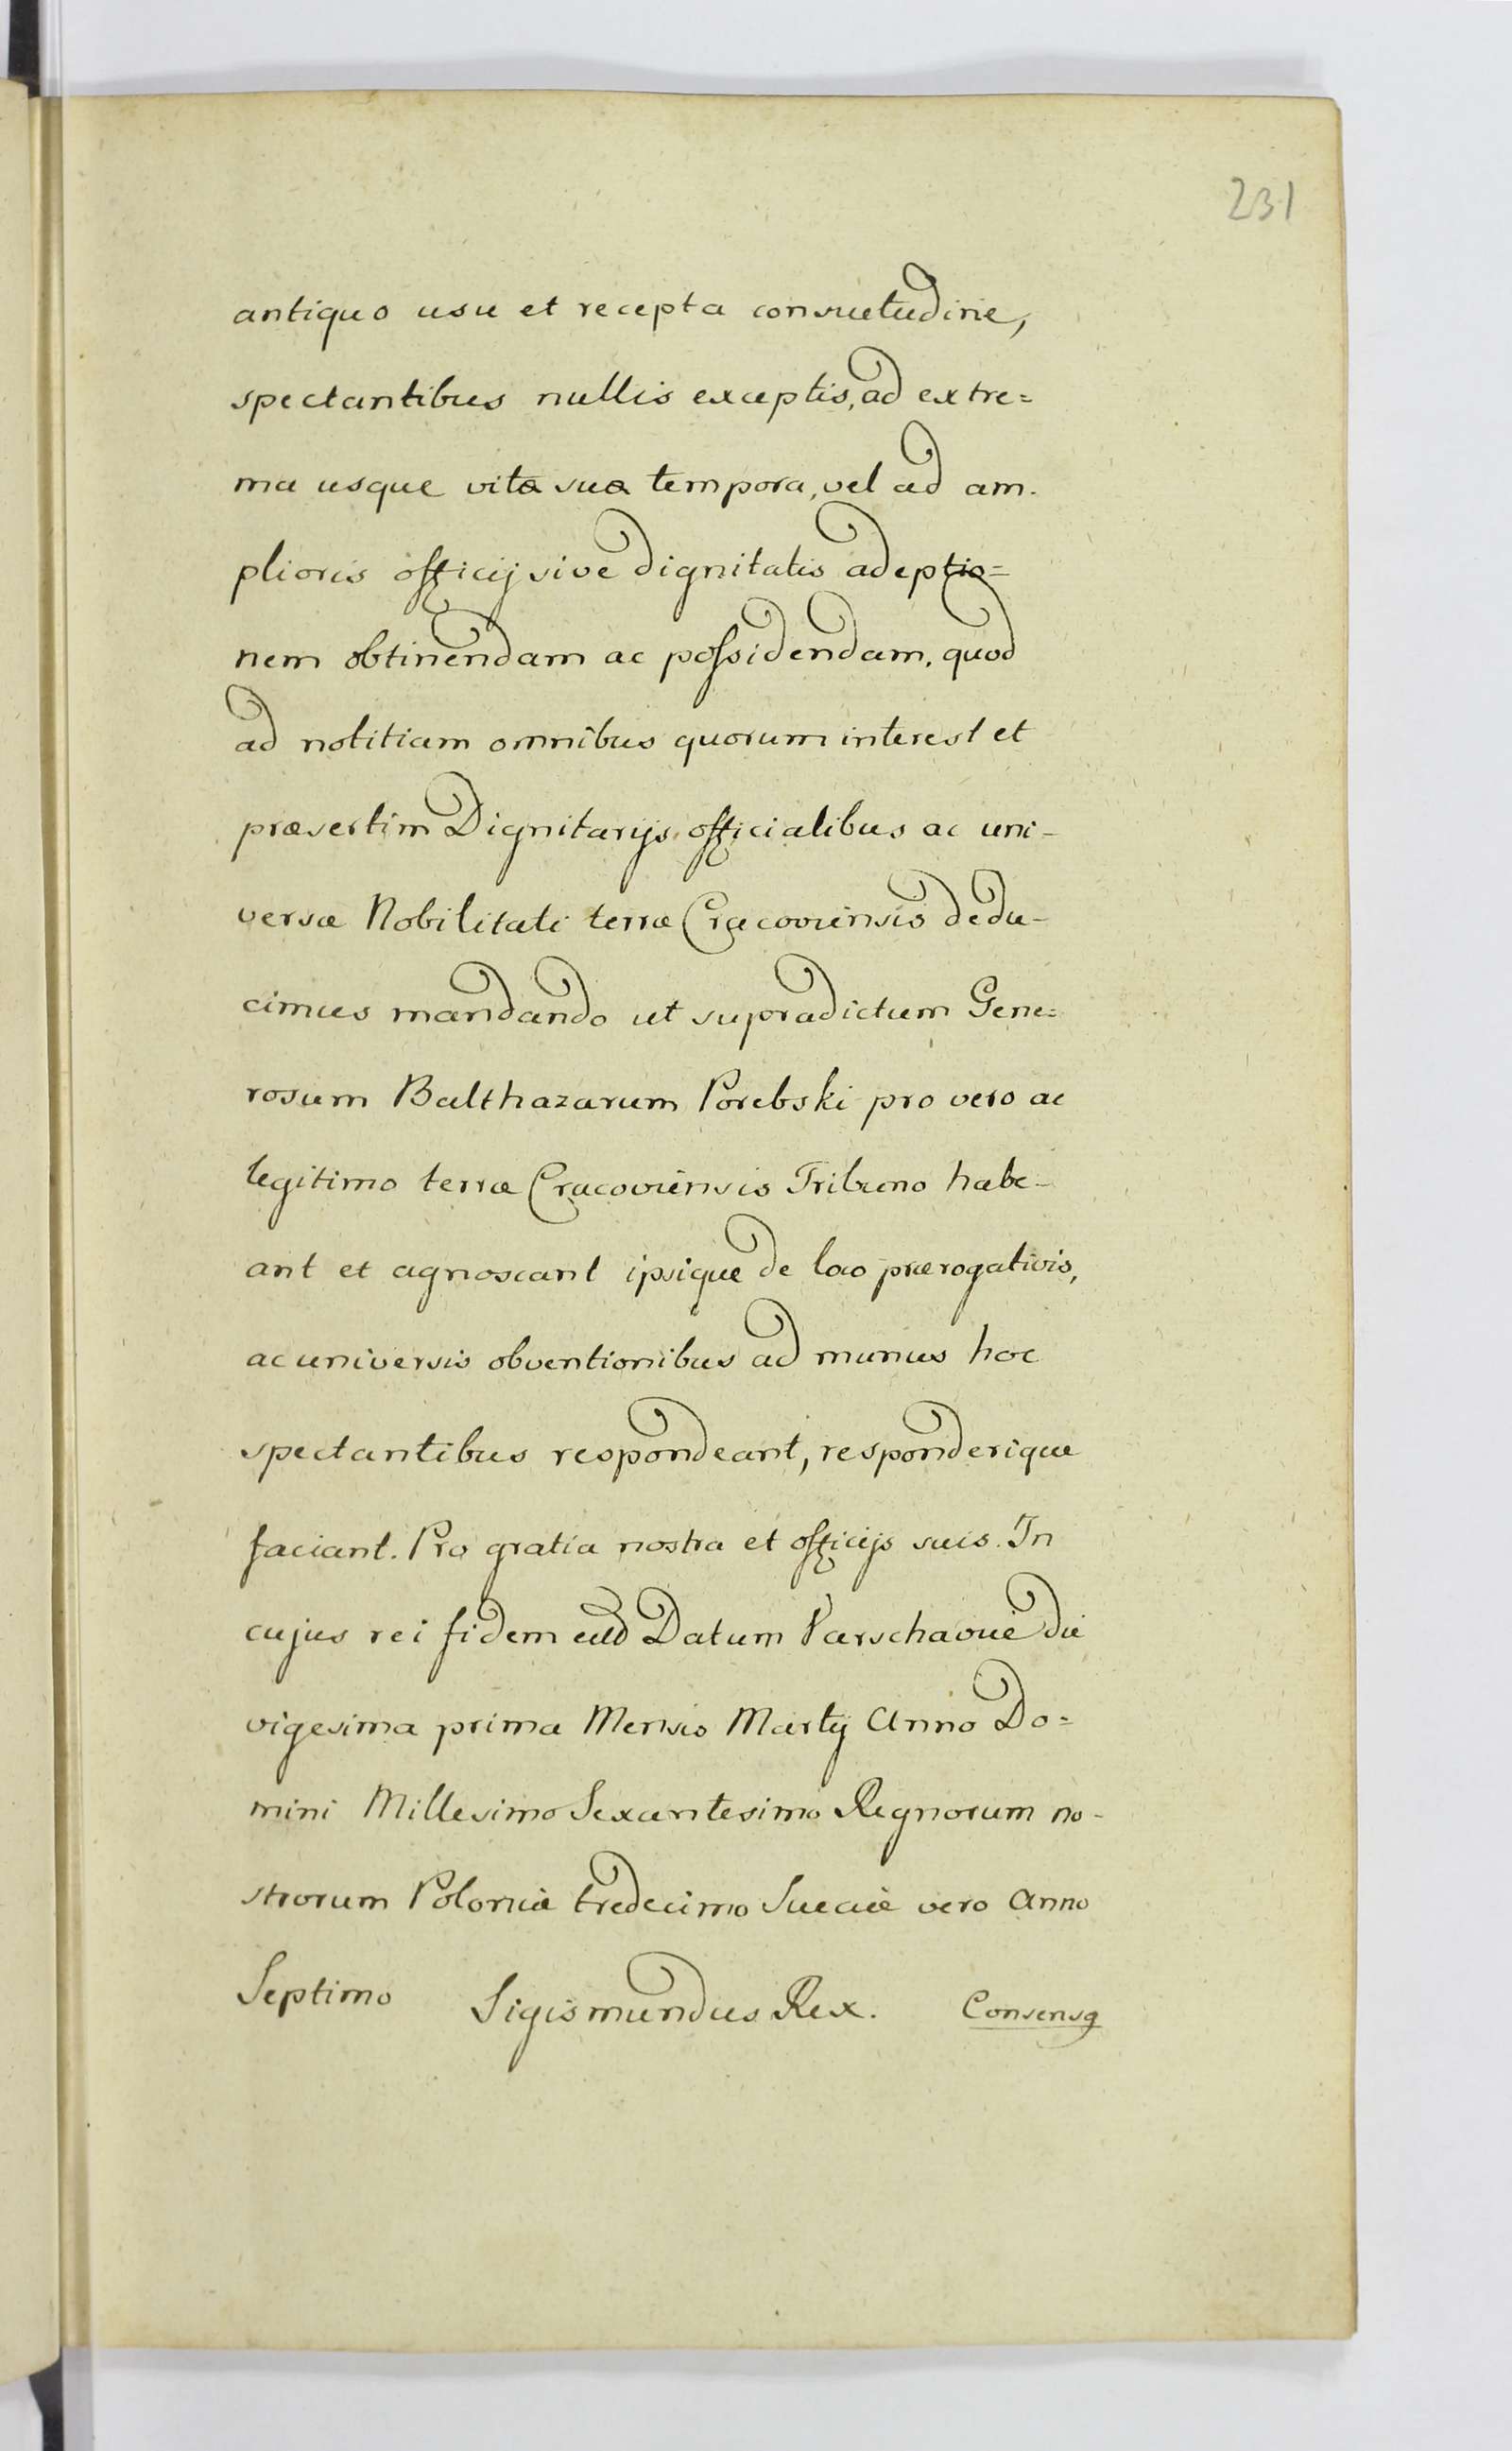 231
antiquo usu et recepta consuetudine,
spectantibus nullis exceptis, ad extre=
ma usque vitæ suæ tempora, vel ad am-
plioris officij sive dignitatis adeptio=
nem obtinendam ac possidendam, quod
ad notitiam omnibus quorum interest et
præsertim Dignitarijs officialibus ac uni-
versæ Nobilitati terræ Cracoviensis dedu-
cimus mandando ut supradictum Gene=
rosum Balthazarum Porebski pro vero ac
legitimo terræ Cracoviensis Tribuno habe-
ant et agnoscant ipsique de loco prærogativis,
ac universis obventionibus ad munus hoc
spectantibus respondeant, responderique
faciant. Pro gratia nostra et officijs suis. In
cujus rei fidem Datum Varschaviæ die
vigesima prima Mensis Martij Anno Do=
mini Millesimo Sexcentesimo Regnorum no-
strorum Poloniæ tredecimo Sueciæ vero Anno
Septimo Sigismundus Rex. Consensq